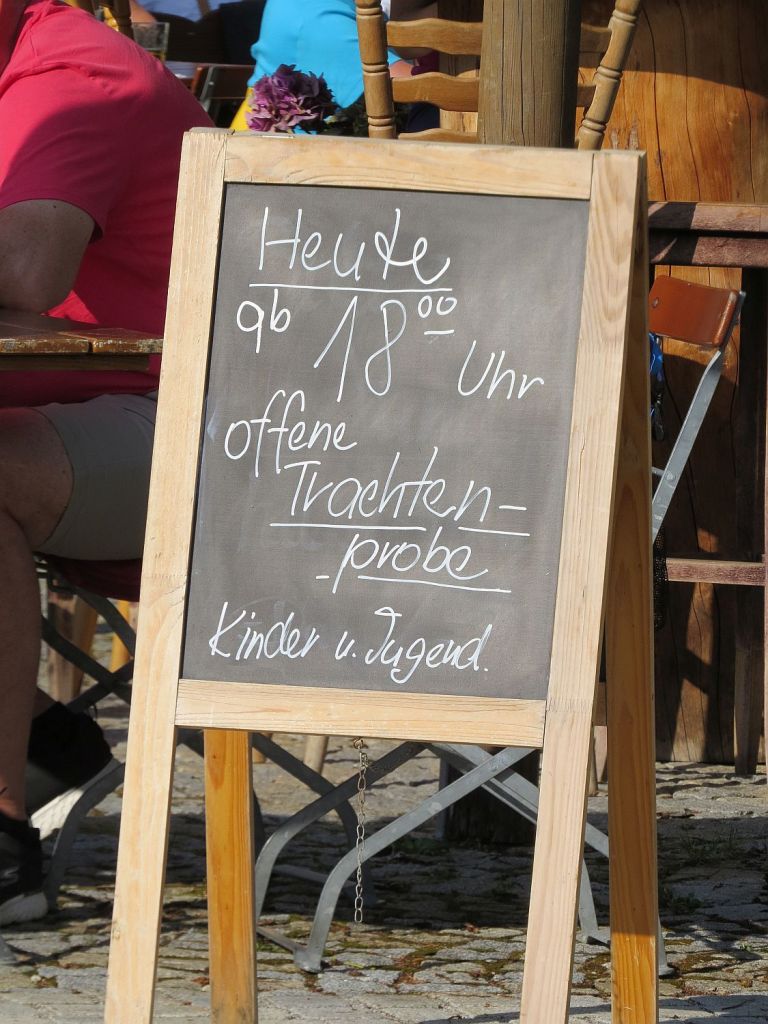 Heute
ab 18⁰⁰ Uhr
offene
Trachten-
-probe
Kinder u. Jugend.